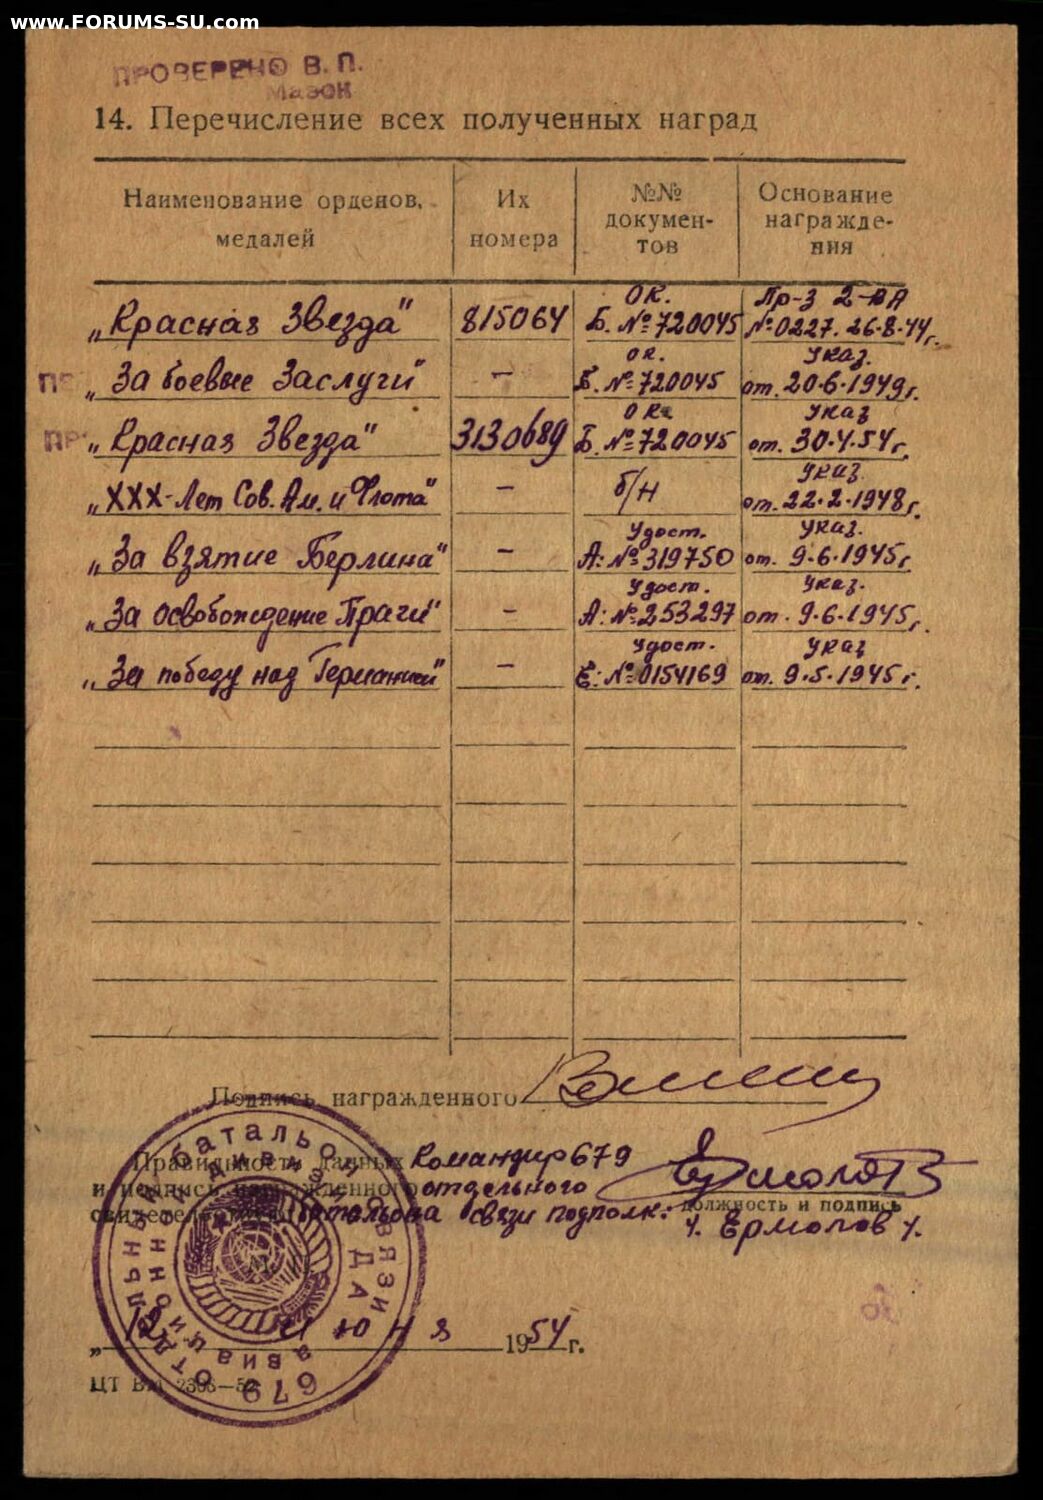 www.FORUMS-SU.com
ПРОВЕРЕНО В. П.
Мазок
14. Перечисление всех полученных наград
Наименование орденов, медалей
Их номера
№№ докумен-
тов
Основание
награжде-
ния
„Красная Звезда" 815064 ОК. Б. №720045 Пр-з 2-ВА №0227. 26·8·44г.
„За боевые Заслуги" — ОК. Б. №720045 Указ. от. 20·6·1949г.
„Красная Звезда" 3130689 ОК. Б. №720045 Указ от. 30·4·54г.
„XXX-Лет Сов. Ам. и Флота" — б/н Указ. от. 22·2·1948г.
„За взятие Берлина" — Удост. А: №319750 Указ. от. 9·6·1945г.
„За освобождение Праги" — Удост. А: №253297 Указ. от. 9·6·1945г.
„За победу над Германией" — Удост. Е: №0154169 Указ от. 9·5·1945г.
Подпись награжденного
Правильность данных Командир 679
и подпись награжденного отдельного
батальона связи подполк:
должность и подпись
Ермолов
„12 Июня 1954 г.
679 отдельный батальон связи
авиационно